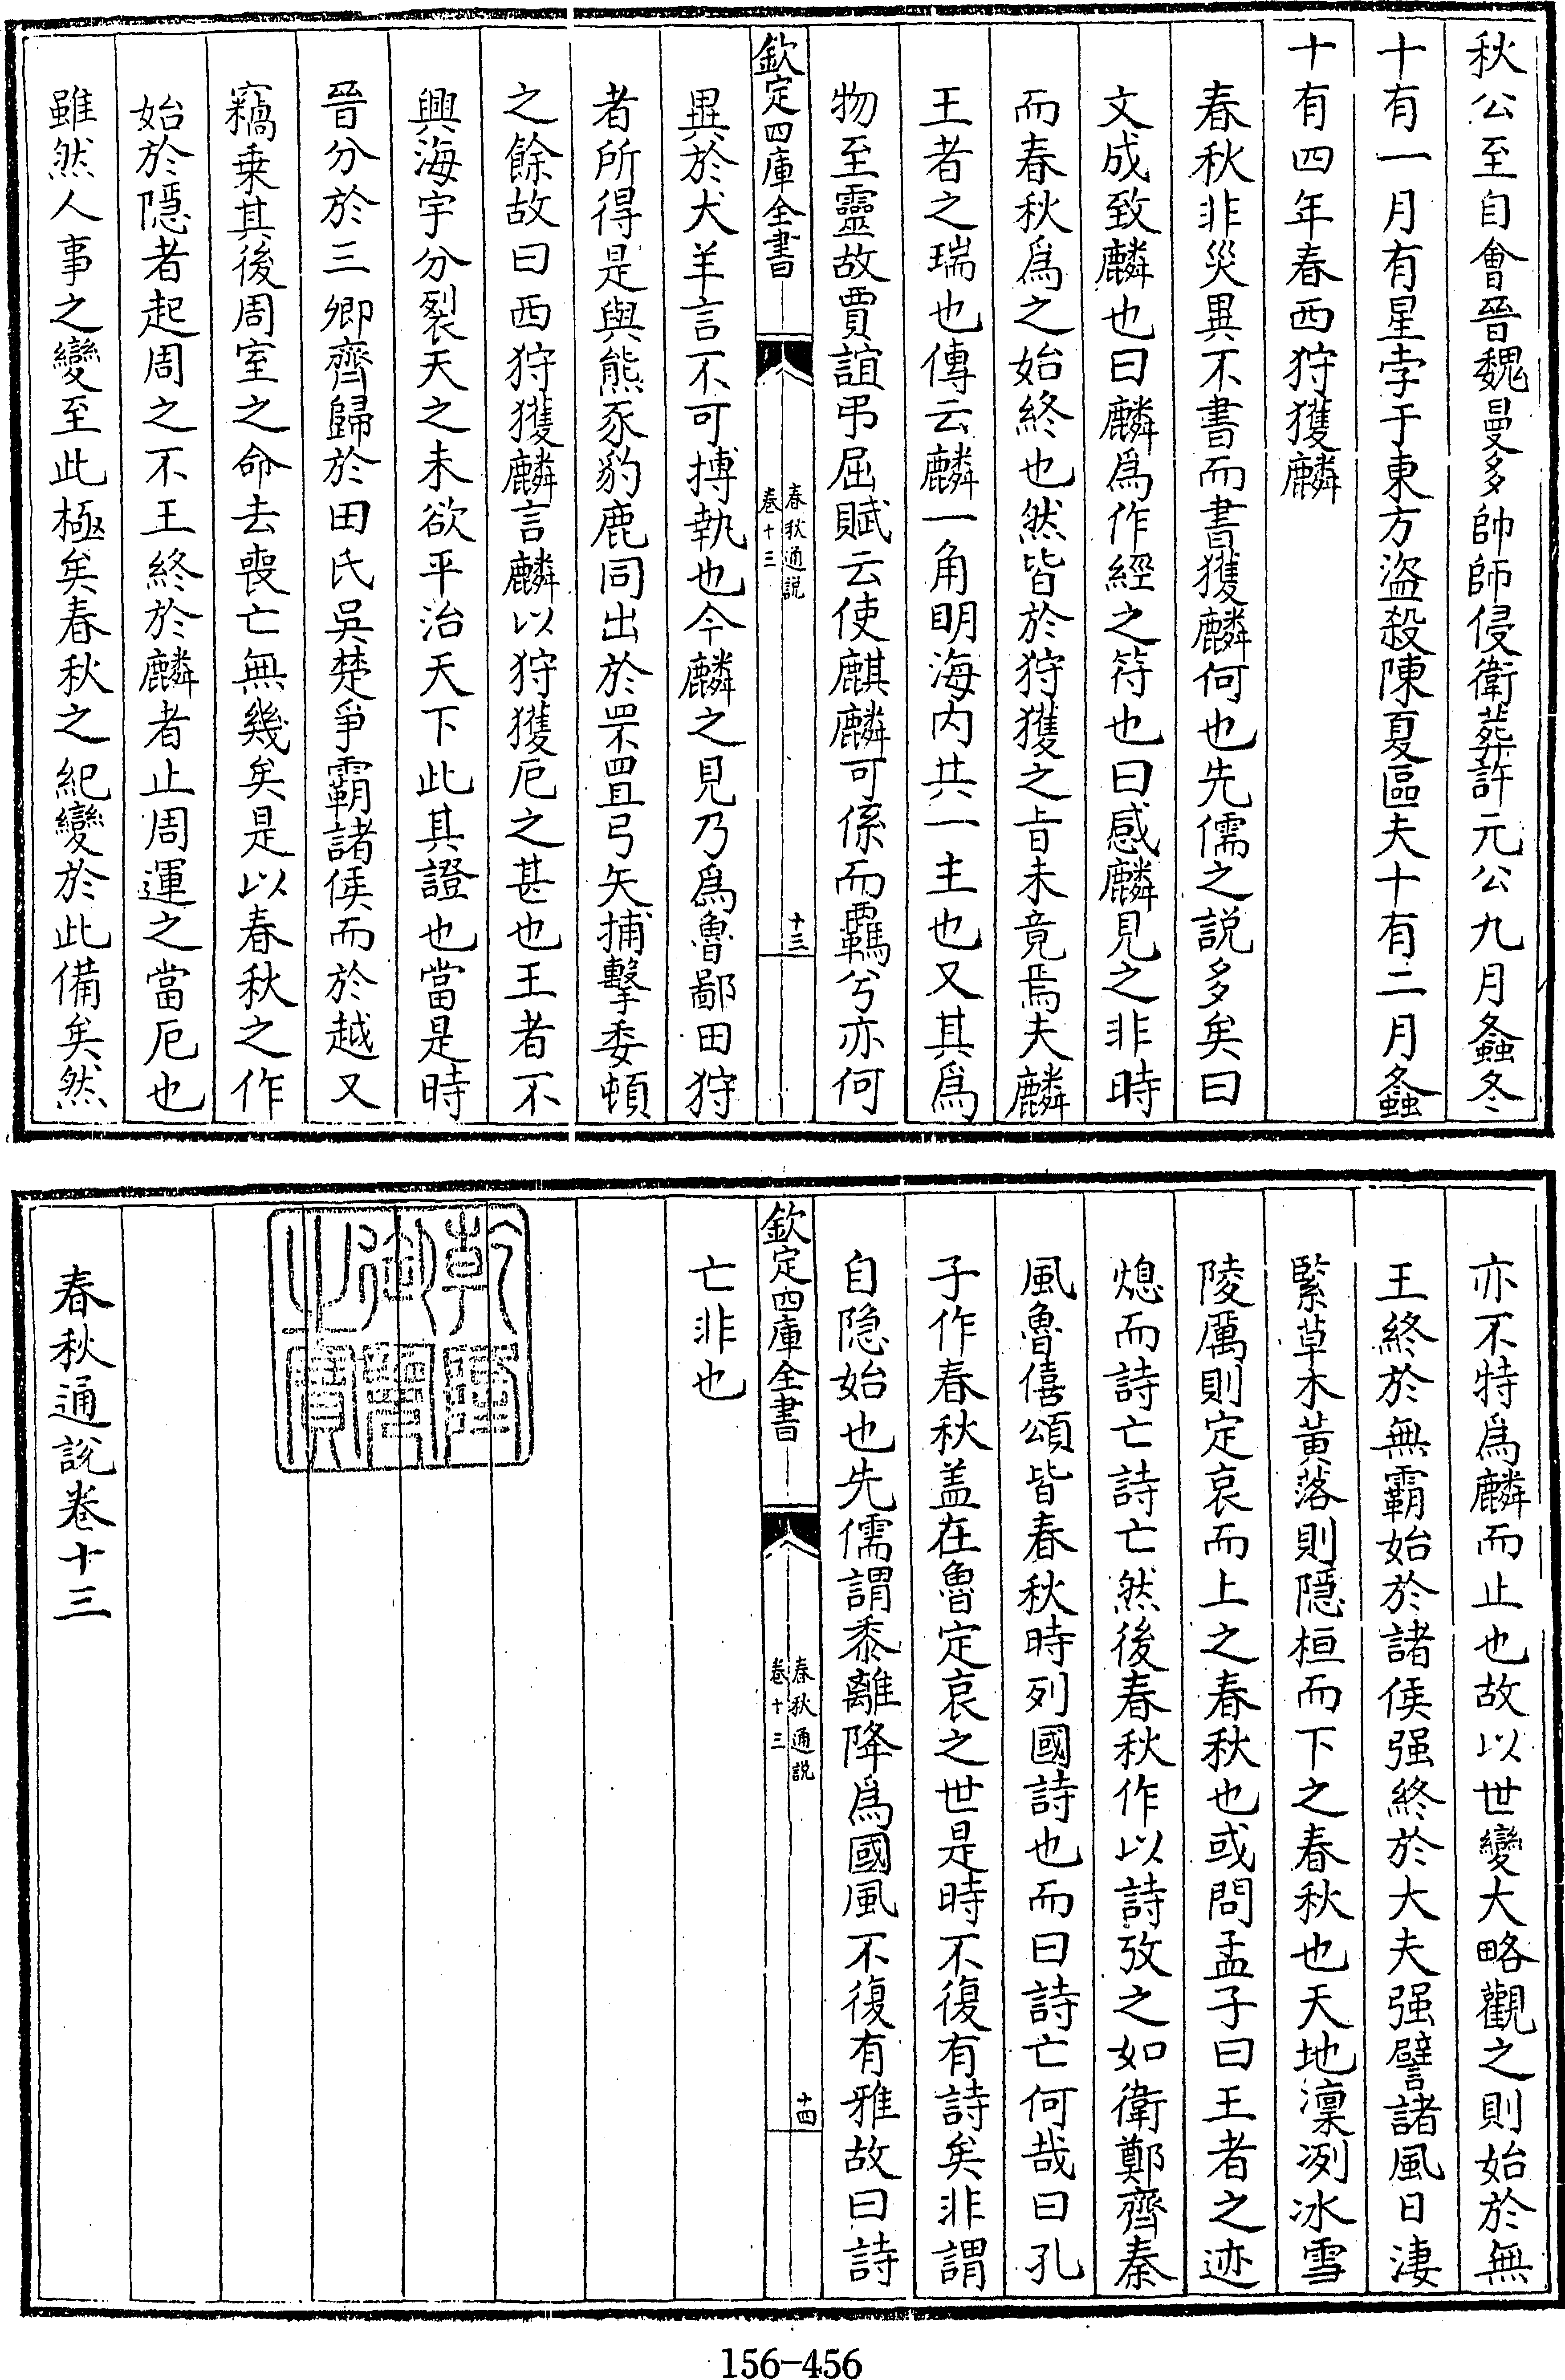 秋公至自會晉魏曼多帥師侵衛葬許元公九月螽冬
十有一月有星孛于東方盜殺陳夏區夫十有二月螽
十有四年春西狩獲麟
春秋非災異不書而書獲麟何也先儒之説多矣曰
文成致麟也曰麟爲作經之符也曰感麟見之非時
而春秋爲之始終也然皆於狩獲之㫖未竟焉夫麟
王者之瑞也傳云麟一角明海内共一主也又其爲
物至靈故賈誼弔屈賦云使麒麟可係而羈兮亦何
欽定四庫全書
春秋通説
卷十三
十三
異於犬羊言不可搏執也今麟之見乃爲魯鄙田狩
者所得是與熊豕豹鹿同出於罘罝弓矢捕擊委頓
之餘故曰西狩獲麟言麟以狩獲厄之甚也王者不
興海宇分裂天之未欲平治天下此其證也當是時
晉分於三卿齊歸於田氏吳楚爭霸諸侯而於越又
竊乗其後周室之命去喪亡無幾矣是以春秋之作
始於隱者起周之不王終於麟者止周運之當厄也
雖然人事之變至此極矣春秋之紀變於此備矣然
亦不特爲麟而止也故以世變大略觀之則始於無
王終於無霸始於諸侯强終於大夫强譬諸風日淒
緊草木黄落則隱桓而下之春秋也天地凜冽冰雪
陵厲則定哀而上之春秋也或問孟子曰王者之迹
熄而詩亡詩亡然後春秋作以詩攷之如衛鄭齊秦
風魯僖頌皆春秋時列國詩也而曰詩亡何哉曰孔
子作春秋盖在魯定哀之世是時不復有詩矣非謂
自隱始也先儒謂黍離降爲國風不復有雅故曰詩
欽定四庫全書
春秋通説
卷十三
十四
亡非也
乾隆御覽之寶
春秋通説卷十三
156-456